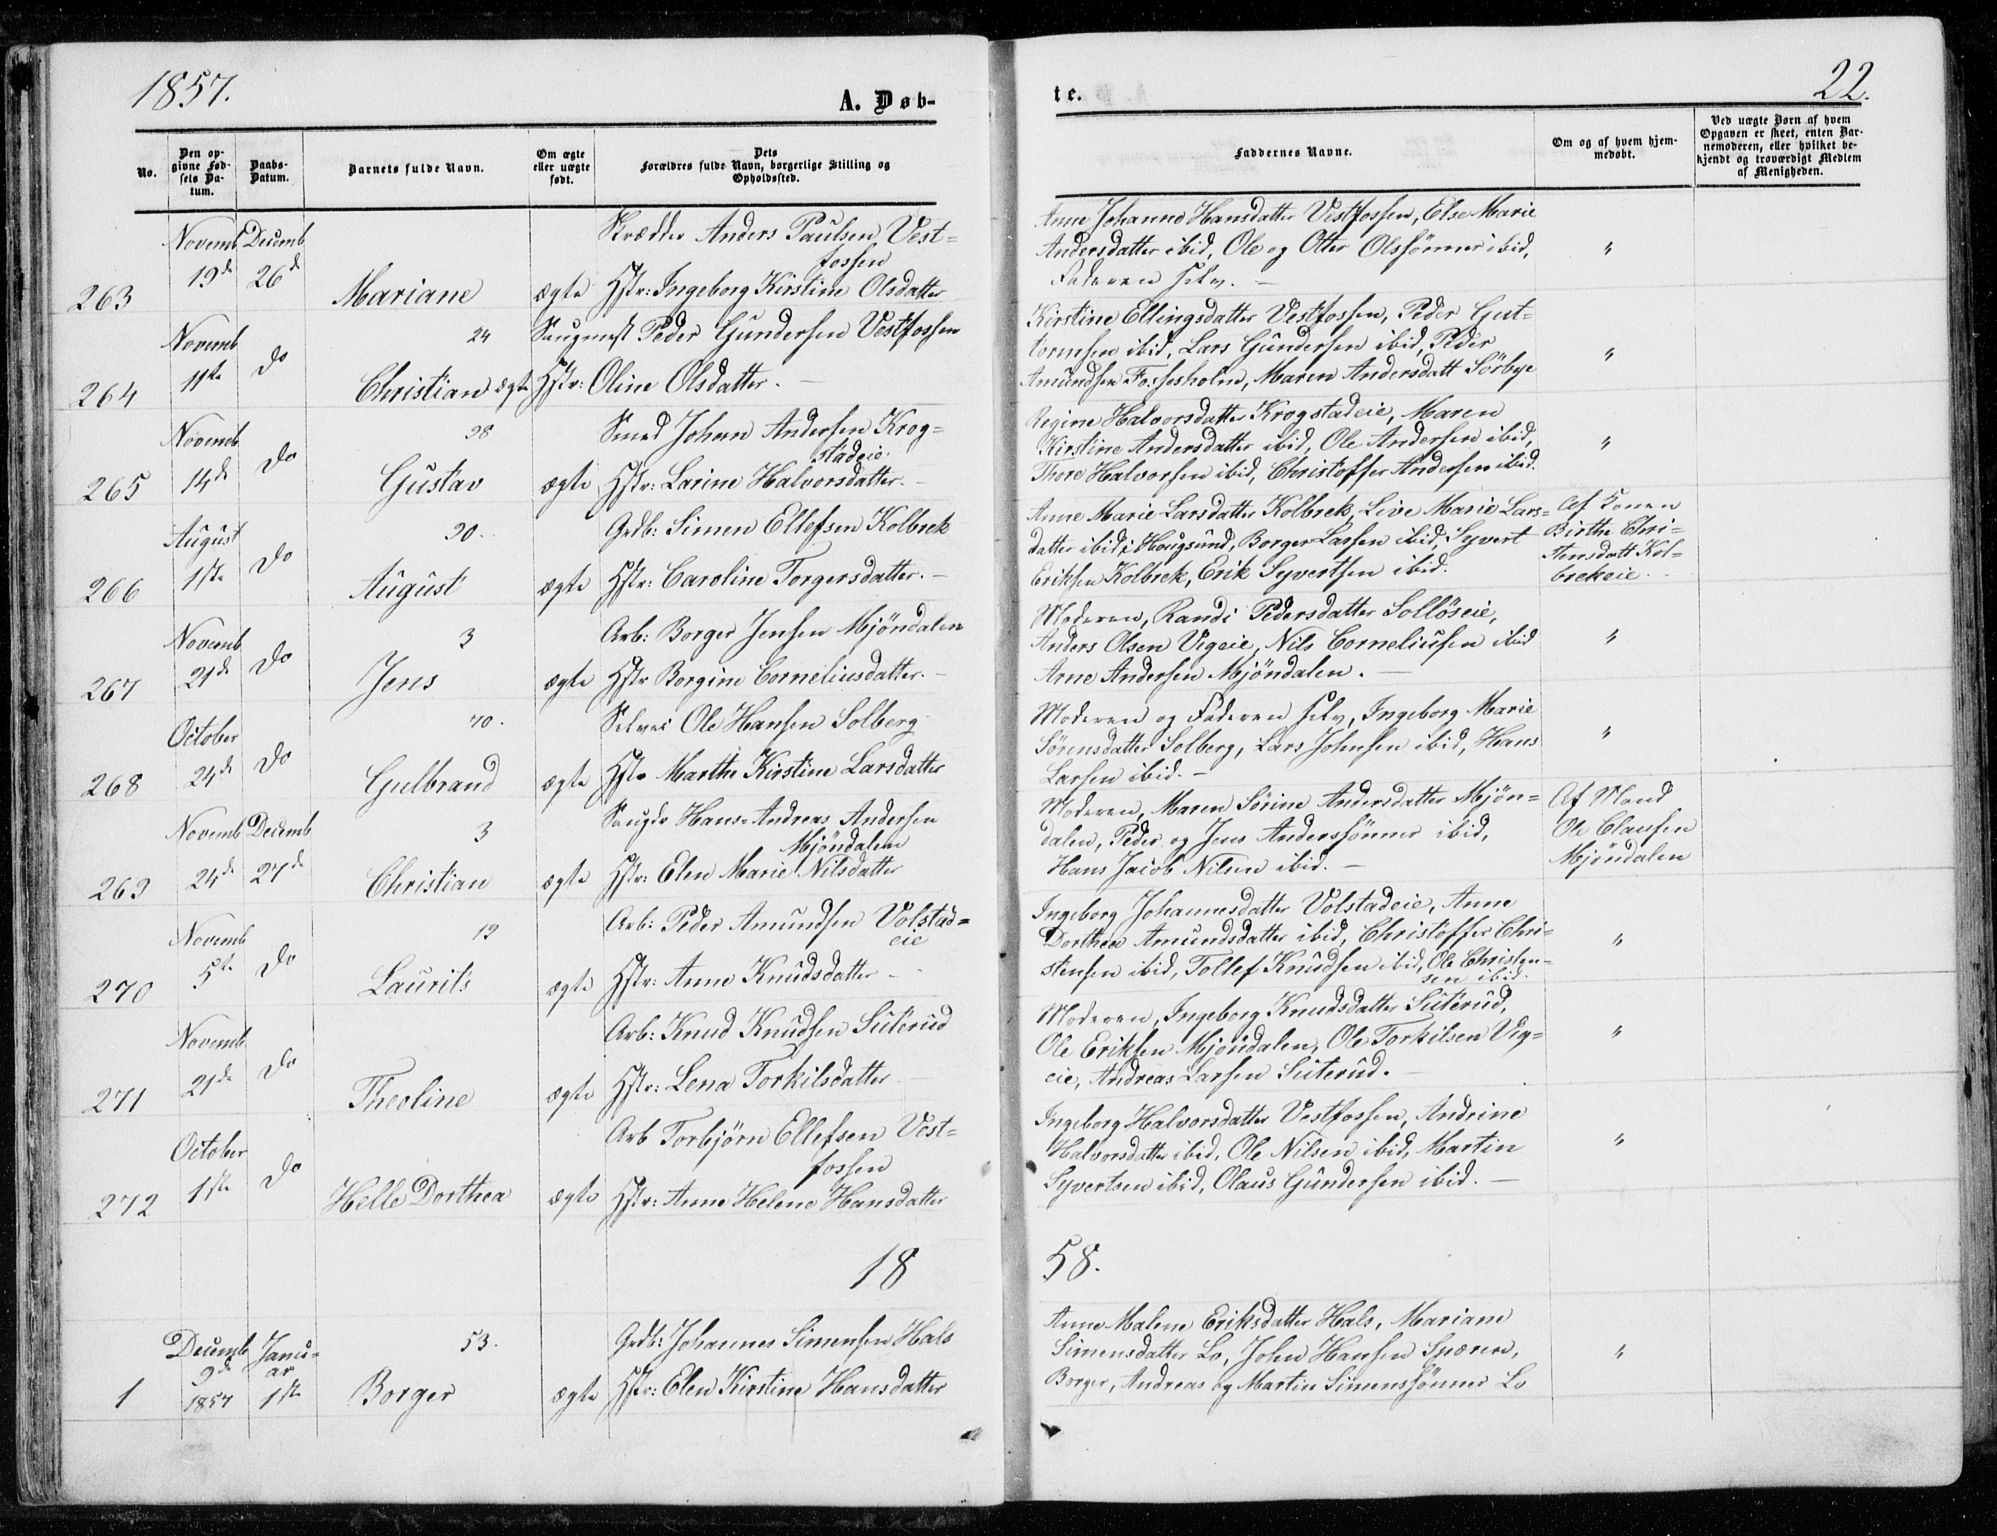 1857.
A. Døb-
te.
22.
No.
Den op-
givne Fød-
sels Da-
tum.
Daabs-
Datum.
Barnets fulde Navn.
Om ægte
eller uægte
født.
Dets
Forældres fulde Navn, borgerlige Stilling og
Opholdssted.
Faddernes Navne.
Om og af hvem hjem-
medøbt.
Ved uægte Børn af hvem
Opgaven er skeet, enten Bar-
nemoderen, eller hvilket be-
kjendt og troværdigt Medlem
af Menigheden.
263
Novemb
19de
Decemb
26de
Mariane
ægte
Skrædder Anders Paulsen Vest=
fossen
Hstr: Ingeborg Kirstine Olsdatter
Anne Johanne Hansdatter Vestfossen, Else Marie
Andersdatter ibid, Ole og Otter Olssønner ibid,
Faderen selv. —
"
264
Novemb
11te
do
24
Christian
ægte
Saugmest Peder Gundersen Vestfossen
Hstr: Oline Olsdatter. —
Kirstine Ellingsdatter Vestfossen, Peder Gut=
tormsen ibid, Lars Gundersen ibid, Peder
Amundsen Fossesholm, Maren Andersdatt Sörbye
"
265
Novemb
14de
do
28
Gustav
ægte
Smed Johan Andersen Krog=
stadeie
Hstr: Larine Halvorsdatter. —
Regine Halvorsdatter Krogstadeie, Maren
Kirstine Andersdatter ibid, Ole Andersen ibid,
Thore Halvorsen ibid, Christoffer Andersen ibid.
"
266
August
1ste
do
30.
August
ægte
Grdb: Simen Ellefsen Kolbrek
Hstr: Caroline Torgersdatter. —
Anne Marie Larsdatter Kolbrek, Live Marie Lars=
datter ibid, i Hougsund, Borger Larsen ibid, Syvert
Eriksen Kolbrek, Erik Syvertsen ibid.
Af Konen
Birthe Chri=
stensdatt Kol=
brekeie. —
267
Novemb
21de
do
3
Jens
ægte
Arb: Borger Jensen Mjöndalen
Hstr Borgine Corneliusdatter. —
Moderen, Randi Pedersdatter Sollöseie,
Anders Olsen Vigeie, Nils Corneliusen ibid
Arne Andersen Mjöndalen. —
"
268
October
24de
do
70.
Gulbrand
ægte
Selvei Ole Hansen Solberg
Hstr Marthe Kirstine Larsdatter
Moderen og Faderen selv, Ingeborg Marie
Sörensdatter Solberg, Lars Johnsen ibid, Hans
Larsen ibid. —
"
269
Novemb
24de
Decemb
27de
3
Christian
ægte
Saugdr Hans Andreas Andersen
Mjöndalen
Hstr: Elen Marie Nilsdatter
Moderen, Maren Sörine Andersdatter Mjön=
dalen, Peder og Jens Anderssönner ibid,
Hans Jacob Nilsen ibid. —
Af Mand
Ole Clausen
Mjöndalen
270
Novemb
5te
do
19
Laurits
ægte
Arb: Peder Amundsen Volstad=
eie
Hstr: Anne Knudsdatter —
Ingeborg Johannesdatter Volstadeie, Anne
Dorthea Amundsdatter ibid, Christoffer Chri=
stensen ibid, Tollef Knudsen ibid, Ole Christen=
sen ibid.
"
271
Novemb
21de
do
Theoline
ægte
Arb: Knud Knudsen Suterud
Hstr: Lena Torkilsdatter
Moderen, Ingeborg Knudsdatter Suterud,
Ole Eriksen Mjöndalen, Ole Torkilsen Vig=
eie, Andreas Larsen Suterud. —
"
272
October
1ste
do
Helle Dorthea
ægte
Arb Torbjörn Ellefsen Vest=
fossen
Hstr: Anne Helene Hansdatter
Ingeborg Halvorsdatter Vestfossen, Andrine
Halvorsdatter ibid, Ole Nilsen ibid, Martin
Syvertsen ibid, Olaus Gundersen ibid. —
"
18
58.
1
Decemb
9de
1857
Janu=
ar
1ste
53.
Borger
ægte
Grdb: Johannes Simensen Hals
Hstr: Elen Kirstine Hansdatter
Anne Malene Eriksdatter Hals, Mariane
Simensdatter Lo, John Hansen Speren,
Borger, Andreas og Martin Simenssönner Lo
"